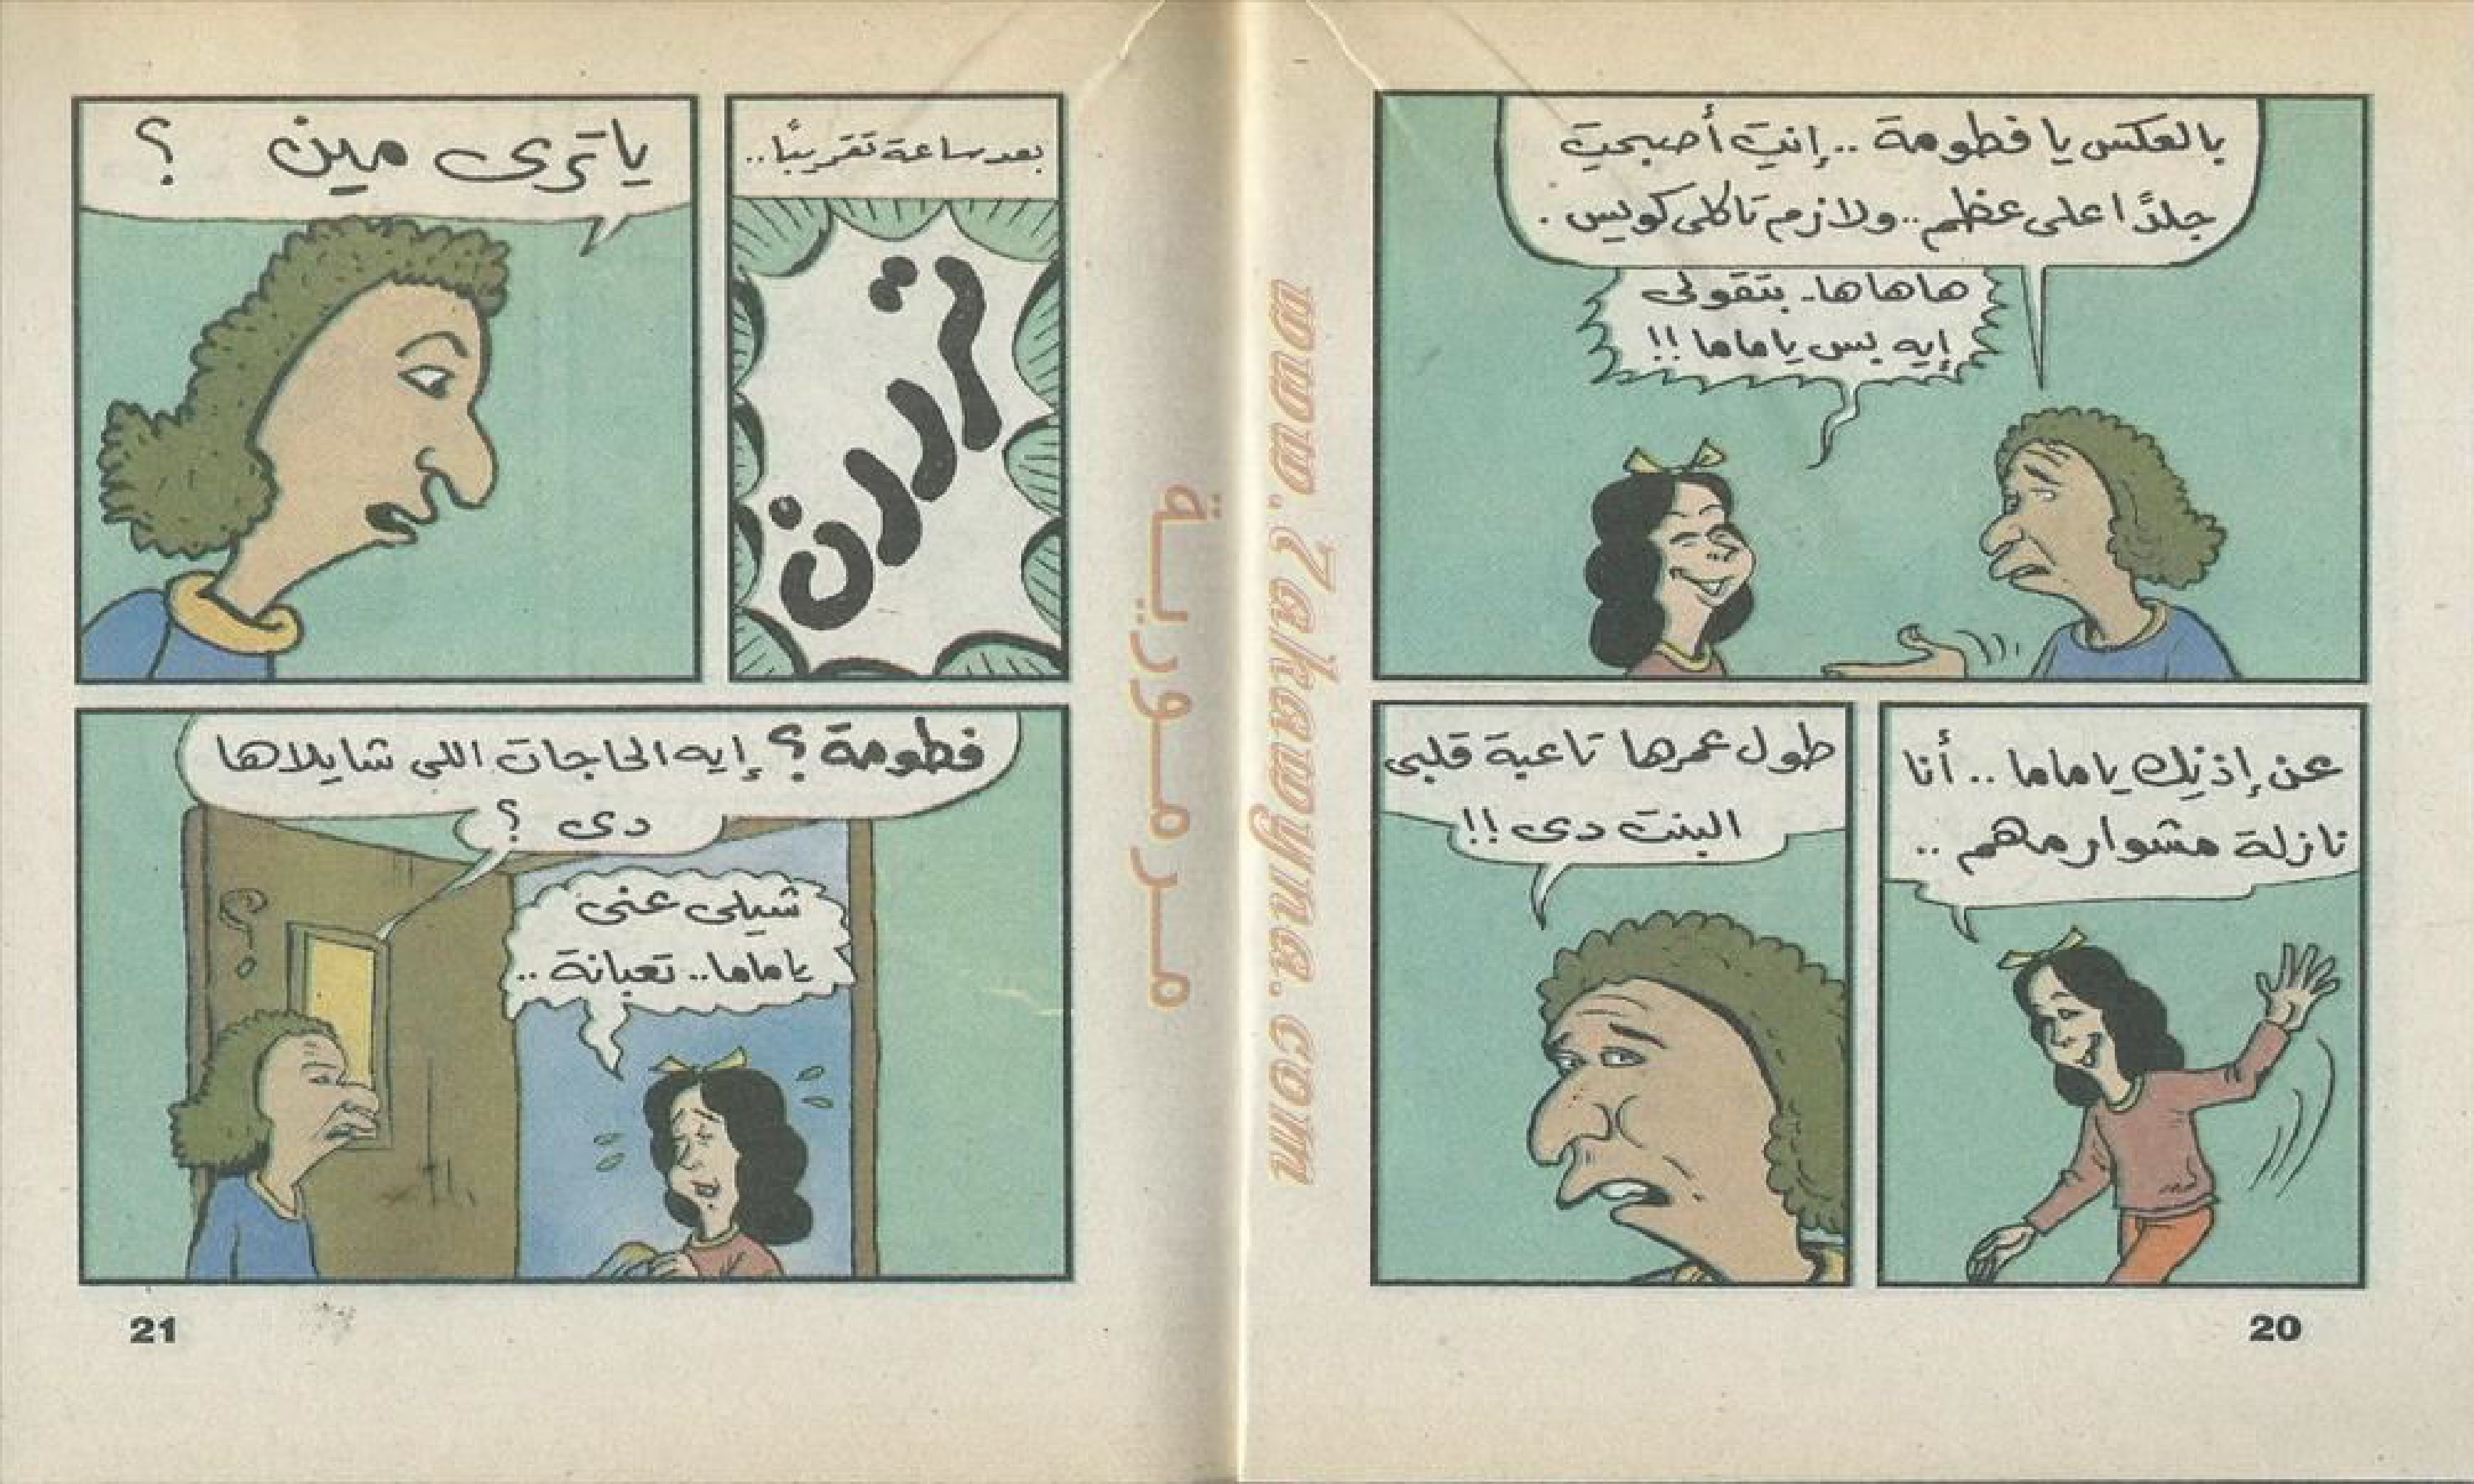 بالعكس يا فطومة .. إنتِ أصبحتِ
جلدًا على عظم .. ولازم تاكلى كويس .
هاهاها.. بتقولى
إيه بس ياماما !!
عن إذنِك ياماما .. أنا
نازلة مشوار مهم ..
طول عمرها تاعبة قلبى
البنت دى !!
20
www.Zakawyna.com
مرمورية
بعد ساعة تقريبًا ..
تررن
ياترى مين ؟
فطومة ؟ إيه الحاجات اللى شايلاها
دى ؟
شيلى عنى
ياماما .. تعبانة ..
21